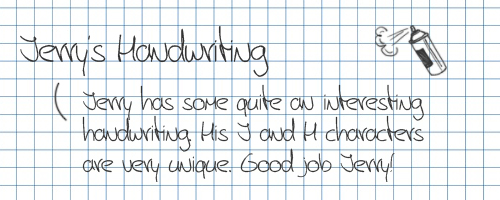 Jerry's Handwriting
Jerry has some quite an interesting
handwriting. His J and H characters
are very unique. Good job Jerry!